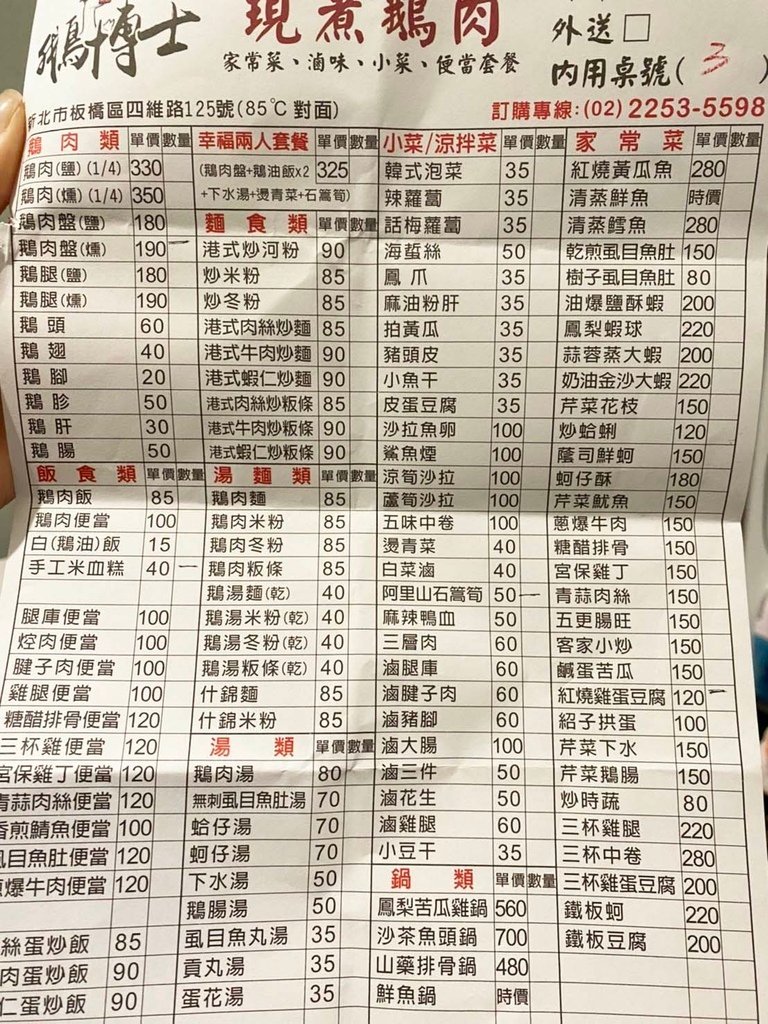 鵝博士 現煮鵝肉
家常菜、滷味、小菜、便當套餐
外送□
內用桌號( 3 )
新北市板橋區四維路125號(85℃ 對面)
訂購專線:(02) 2253-5598
鵝肉類 單價 數量
鵝肉(鹽)(1/4) 330
鵝肉(燻)(1/4) 350
鵝肉盤(鹽) 180
鵝肉盤(燻) 190 一
鵝腿(鹽) 180
鵝腿(燻) 190
鵝頭 60
鵝翅 40
鵝腳 20
鵝胗 50
鵝肝 30
鵝腸 50
飯食類 單價 數量
鵝肉飯 85
鵝肉便當 100
白(鵝油)飯 15
手工米血糕 40 一
腿庫便當 100
焢肉便當 100
腱子肉便當 100
雞腿便當 100
糖醋排骨便當 120
三杯雞便當 120
宮保雞丁便當 120
青蒜肉絲便當 120
香煎鯖魚便當 100
虱目魚肚便當 120
蔥爆牛肉便當 120
絲蛋炒飯 85
肉蛋炒飯 90
仁蛋炒飯 90
幸福兩人套餐 單價 數量
(鵝肉盤+鵝油飯x2 325
+下水湯+燙青菜+石篙筍)
麵食類 單價 數量
港式炒河粉 90
炒米粉 85
炒冬粉 85
港式肉絲炒麵 85
港式牛肉炒麵 90
港式蝦仁炒麵 90
港式肉絲炒粄條 85
港式牛肉炒粄條 90
港式蝦仁炒粄條 90
湯麵類 單價 數量
鵝肉麵 85
鵝肉米粉 85
鵝肉冬粉 85
鵝肉粄條 85
鵝湯麵(乾) 40
鵝湯米粉(乾) 40
鵝湯冬粉(乾) 40
鵝湯粄條(乾) 40
什錦麵 85
什錦米粉 85
湯類 單價 數量
鵝肉湯 80
無刺虱目魚肚湯 70
蛤仔湯 70
蚵仔湯 70
下水湯 50
鵝腸湯 50
虱目魚丸湯 35
貢丸湯 35
蛋花湯 35
小菜/涼拌菜 單價 數量
韓式泡菜 35
辣蘿蔔 35
話梅蘿蔔 35
海蜇絲 50
鳳爪 35
麻油粉肝 35
拍黃瓜 35
豬頭皮 35
小魚干 35
皮蛋豆腐 35
沙拉魚卵 100
鯊魚煙 100
涼筍沙拉 100
蘆筍沙拉 100
五味中卷 100
燙青菜 40
白菜滷 40
阿里山石篙筍 50 一
麻辣鴨血 50
三層肉 60
滷腿庫 60
滷腱子肉 60
滷豬腳 60
滷大腸 100
滷三件 50
滷花生 50
滷雞腿 60
小豆干 35
鍋類 單價 數量
鳳梨苦瓜雞鍋 560
沙茶魚頭鍋 700
山藥排骨鍋 480
鮮魚鍋 時價
家常菜 單價 數量
紅燒黃瓜魚 280
清蒸鮮魚 時價
清蒸鱈魚 280
乾煎虱目魚肚 150
樹子虱目魚肚 80
油爆鹽酥蝦 200
鳳梨蝦球 220
蒜蓉蒸大蝦 200
奶油金沙大蝦 220
芹菜花枝 150
炒蛤蜊 120
蔭司鮮蚵 150
蚵仔酥 180
芹菜魷魚 150
蔥爆牛肉 150
糖醋排骨 150
宮保雞丁 150
青蒜肉絲 150
五更腸旺 150
客家小炒 150
鹹蛋苦瓜 150
紅燒雞蛋豆腐 120 一
紹子拱蛋 100
芹菜下水 150
芹菜鵝腸 150
炒時蔬 80
三杯雞腿 220
三杯中卷 280
三杯雞蛋豆腐 200
鐵板蚵 220
鐵板豆腐 200